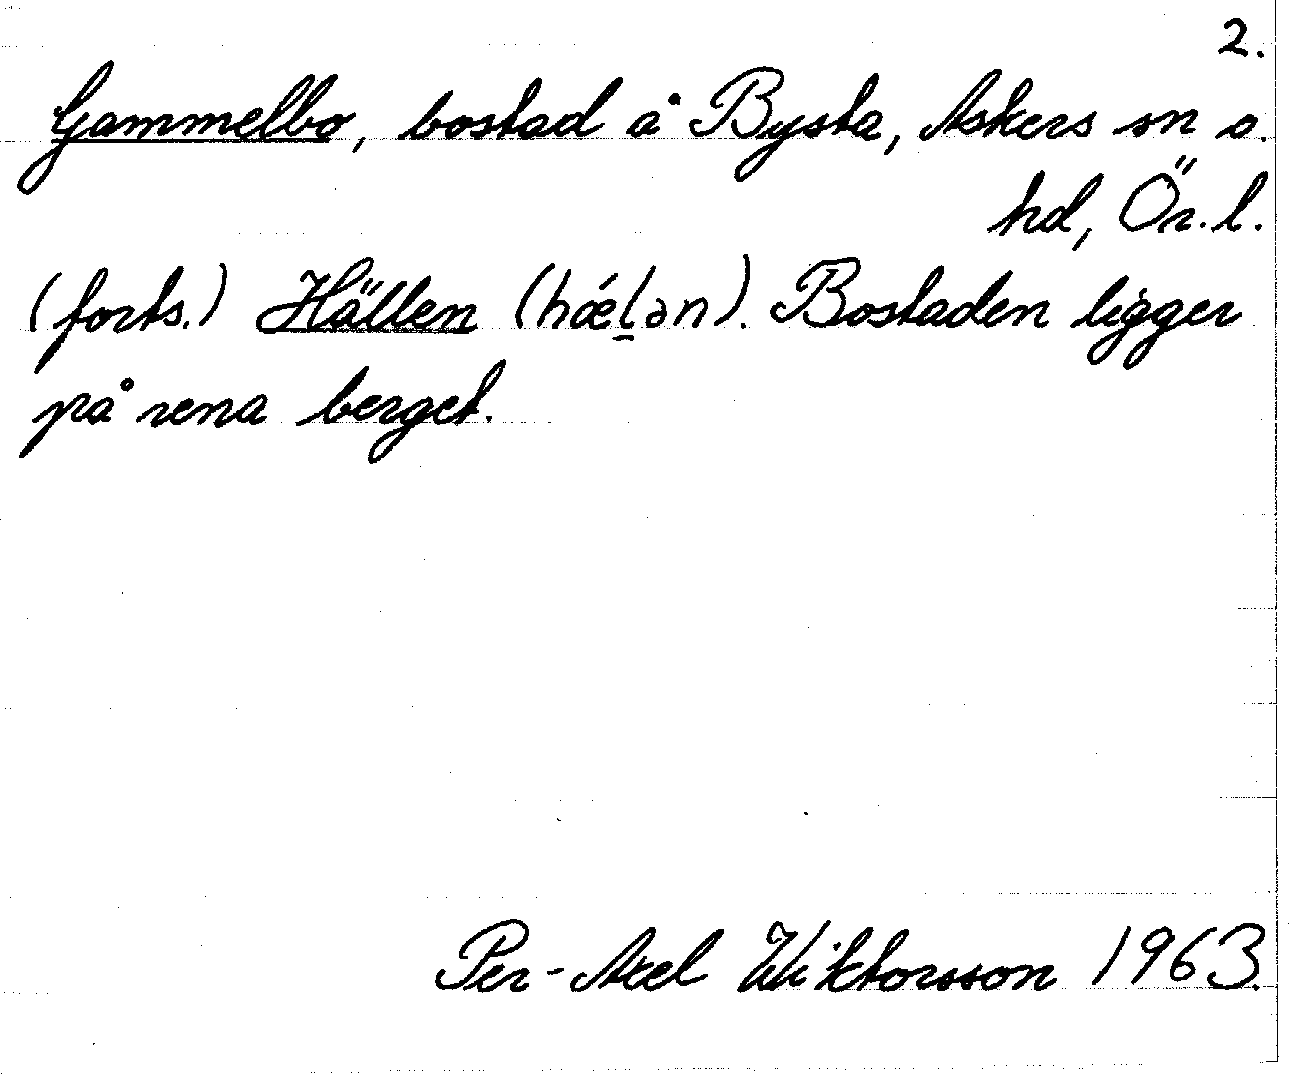 2.
Gammelbo, bostad å Bysta, Askers sn o.
hd, Ör. l.
(forts.) Hällen (hǽḻən). Bostaden ligger
på rena berget.
Per-Axel Wiktorsson 1963.